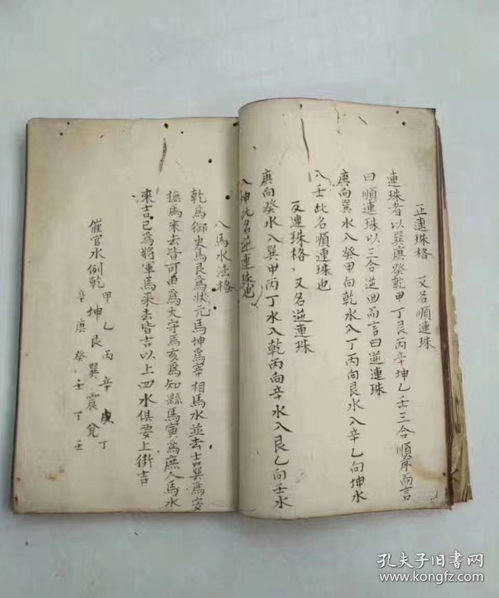 正連珠格 又名順連珠
連珠者以巽庚癸乾甲丁艮丙辛坤乙壬三合順序而言
曰順連珠以三合逆回而言曰逆連珠
庚向巽水入癸甲向乾水入丁丙向艮水入辛乙向坤水
入壬此名順連珠也
反連珠格、又名逆連珠
庚向癸水入巽甲向丁水入乾丙向辛水入艮乙向壬水
入坤此名逆連珠也
八馬水法格
乾為御史馬艮為狀元馬坤為宰相馬水並去吉巽為安
撫馬來去皆可 為太守 為亥為知縣馬寅為庶人馬水
來吉 為將軍馬來去皆吉以上四水俱要上街吉
催官水例乾坤艮巽震兌
甲乙丙辛 丁
辛庚癸壬丁
孔夫子旧書网
www.kongfz.com